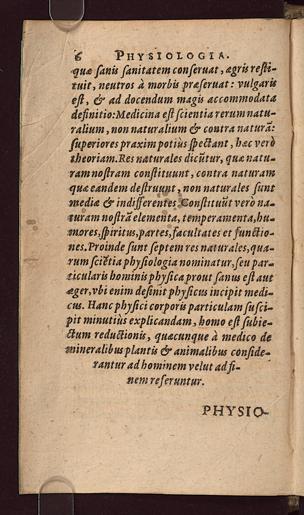 6 PHYSIOLOGIA.
quæ sanis sanitatem conseruat, ægris resti-
tuit, neutros à morbis præseruat: vulgaris
est, & ad docendum magis accommodata
definitio: Medicina est scientia rerum natu-
ralium, non naturalium & contra naturã:
superiores praxim potiùs spectant, hæc verò
theoriam. Res naturales dicũtur, quæ natu-
ram nostram constituunt, contra naturam
quæ eandem destruunt, non naturales sunt
mediæ & indifferentes. Constituũt verò na-
turam nostrã elementa, temperamenta, hu-
mores, spiritus, partes, facultates et functio-
nes. Proinde sunt septem res naturales, qua-
rum sciẽtia physiologia nominatur, seu par-
ticularis hominis physica prout sanus est aut
æger, vbi enim definit physicus incipit medi-
cus. Hanc physici corporis particulam susci-
pit minutiùs explicandam, homo est subie-
ctum reductionis, quacunque à medico de
mineralibus plantis & animalibus conside-
rantur ad hominem velut ad fi-
nem referuntur.
PHYSIO-